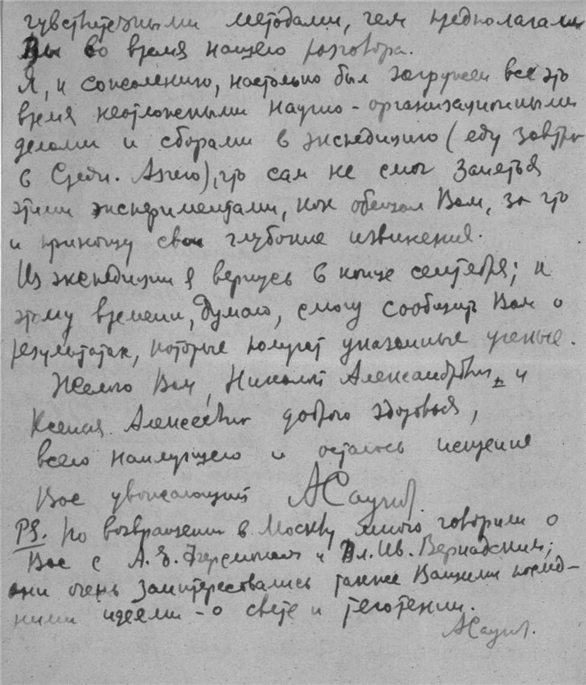 чувствительными методами, чем предполагали
Вы во время нашего разговора.
Я, к сожалению, настолько был загружен все это
время неотложными научно-организационными
делами и сборами в экспедицию (еду завтра
в Средн. Азию), что сам не смог заняться
этими экспериментами, как обещал Вам, за что
и приношу свои глубокие извинения.
Из экспедиции я вернусь в конце сентября; к
этому времени, думаю, смогу сообщить Вам о
результатах, которые получат указанные ученые.
Желаю Вам, Николай Александрович, и
Ксении Алексеевне доброго здоровья,
всего наилучшего и остаюсь искренне
Вас уважающий АСауков.
PS. По возвращении в Москву много говорили о
Вас с А.Е. Ферсманом и Вл. Ив. Вернадским;
они очень заинтересовались также Вашими послед-
ними идеями - о свете и тяготении.
АСауков.